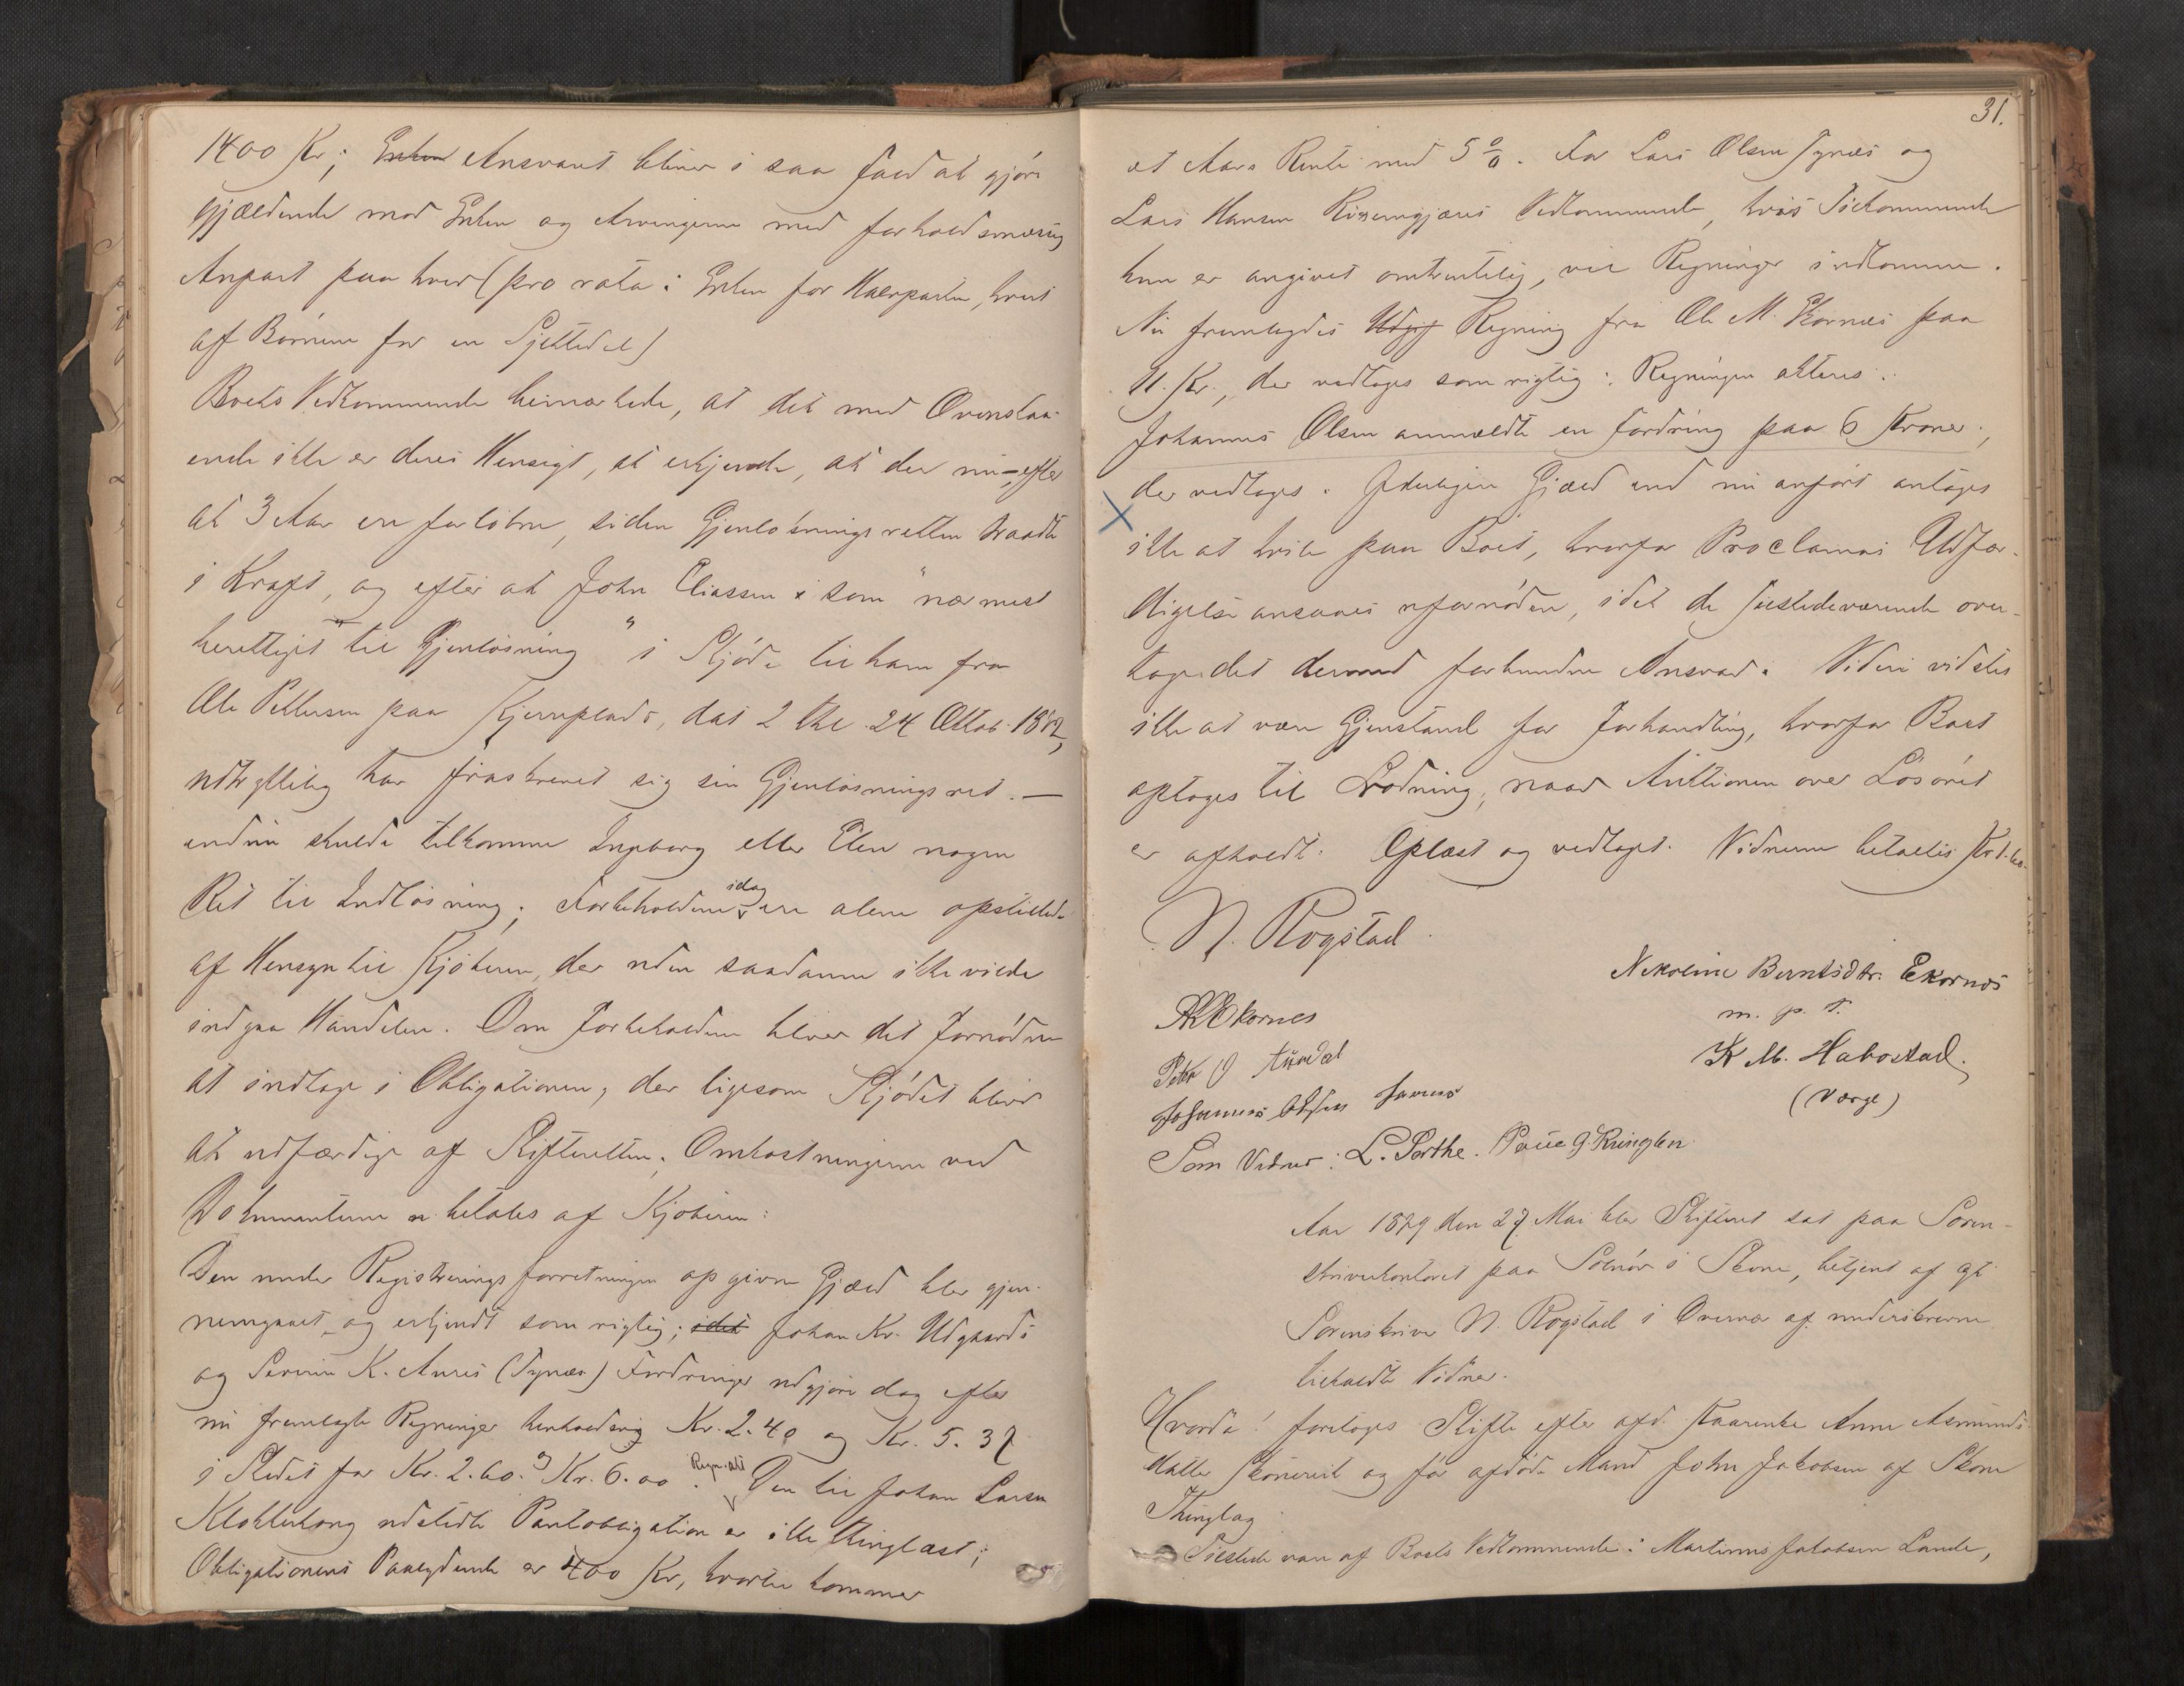 1400 Kr; Enken Ansvaret bliver i saa Fald at gjøre
gjældende mod Enken og Arvingerne med forholdsmæssig
Anpart paa hver (pro rata: Enken for Halvparten, hvert
af Børnene for en Sjettedel)
Boets Vedkommende bemærkede, at det med Ovenstaa-
ende ikke er deres Hensigt, at erkjende, at der nu – efter
at 3 Aar ere forløbne, siden Gjenløsningsretten traadte
i Kraft, og efter at John Eliassen som "nærmest
berettiget til Gjenløsning" i Skjøde til ham fra
Ole Pettersen paa Kjerneplads, dat 2 24 Oktob. 1872,
udtrykkelig har fraskrevet sig sin Gjenløsningsret. –
endnu skulde tilkomme Ingborg eller Elen nogen
Ret til Indløsning. Forbeholdene idag ere alene opstillede
af Hensyn til Kjøberen, der uden saadanne ikke vilde
indgaa Handelen. Om Forbeholdene bliver det Fornødne
at indtage i Obligationen, der ligesom Skjødet bliver
at udfærdige af Skifteretten. Omkostningerne ved
Dokumenterne betales af Kjøberen:
Den under Registreringsforretningen opgivne Gjæld blev gjen-
nemgaaet og erkjendt som rigtig; idet Johan Kr. Udgaards
og Severin K. Aures (Tynæs) Fordringer udgjøre dog efter
nu fremlagte Regninger henholdsvis Kr. 2.40 og Kr. 5.37
i Stedet for Kr. 2.60. og Kr. 6.00. Regn. akt Den til Johan Larsen
Klokkehoug udstedte Pantobligation er ikke thinglæst;
Obligationens Paalydende er 400 Kr, hvortil kommer
31.
et Aars Rente med 5 %. For Lars Olsen Tynæs og
Lars Hansen Vedkommende, hvis Tilkommende
kun er angivet omtrentlig, vil Regninger indkomme.
Nu fremlagdes Udgif Regning fra Ole M. Ekornæs paa
11. Kr., der vedtages som rigtig. Regningen akteres.
Johannes Olsen anmældte en Fordring paa 6 Kroner.,
der vedtages. Yderligere Gjæld end nu anført antages
ikke at hvile paa Boet, hvorfor Proclamas Udfær-
digelse ansaaes ufornøden, idet de Tilstedeværende over-
tage det dermed forbundne Ansvar. Videre vidstes
ikke at være Gjenstand for Forhandling, hvorfor Boet
optages til Lodning, naar Auktionen over Løsøret
er afholdt. Oplæst og vedtaget. Vidnerne betaltes Kr 1.60.
N. Rogstad.
Nekoline Berntsdtr. Ekornæs
m. p. P.
Ekornes
K M. Habostad.
(Værge)
Peter O Aurdal
Johannes Olsen
Som Vidner: L. Porthe. Paul G. Kringlen
Aar 1879 den 27. Mai blev Skifteret sat paa Soren-
skriverkontoret paa Solnør i Skone, betjent af
Sorenskriver N. Rogstad i Overvær af underskrevne
tilkaldte Vidner.
Hvorda! foretages Skifte efter afd. Kaarenke Anne Asmunds-
datter og før afdøde Mand John Jakobsen af Skone
Thinglag
Tilstede vare af Boets Vedkommende: Martinus Jakobsen Lande,